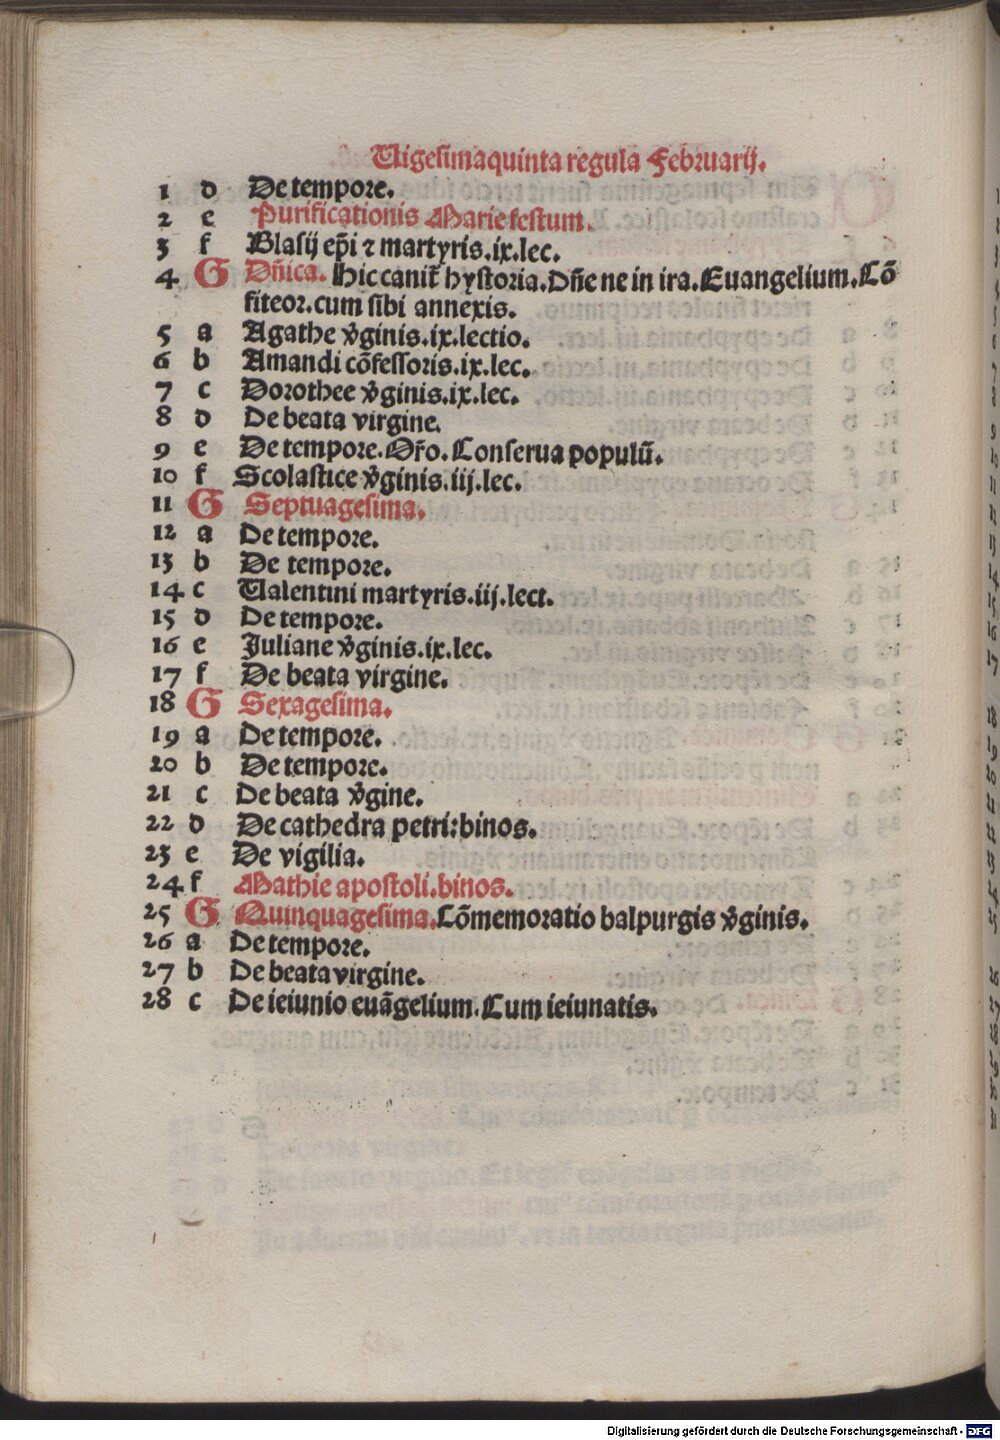 Vigesimaquinta regula Februarij.
1 d De tempore.
2 e Purificationis Marie festum.
3 f Blasij ep̄i ⁊ martyris.ix.lec.
4 G Dn̄ica. Hic canit᷑ hystoria.Dn̄e ne in ira.Euangelium.Cō
fiteor.cum sibi annexis.
5 a Agathe v̄ginis.ix.lectio.
6 b Amandi cōfessoris.ix.lec.
7 c Dorothee v̄ginis.ix.lec.
8 d De beata virgine.
9 e De tempore.Or̄o.Conserua populū.
10 f Scolastice v̄ginis.iij.lec.
11 G Septuagesima.
12 a De tempore.
13 b De tempore.
14 c Valentini martyris.iij.lect.
15 d De tempore.
16 e Juliane v̄ginis.ix.lec.
17 f De beata virgine.
18 G Sexagesima.
19 a De tempore.
20 b De tempore.
21 c De beata v̄gine.
22 d De cathedra petri:binos.
23 e De vigilia.
24 f Mathie apostoli.binos.
25 G Quinquagesima.Cōmemoratio balpurgis v̄ginis.
26 a De tempore.
27 b De beata virgine.
28 c De ieiunio euāgelium.Cum ieiunatis.
Digitalisierung gefördert durch die Deutsche Forschungsgemeinschaft - DFG